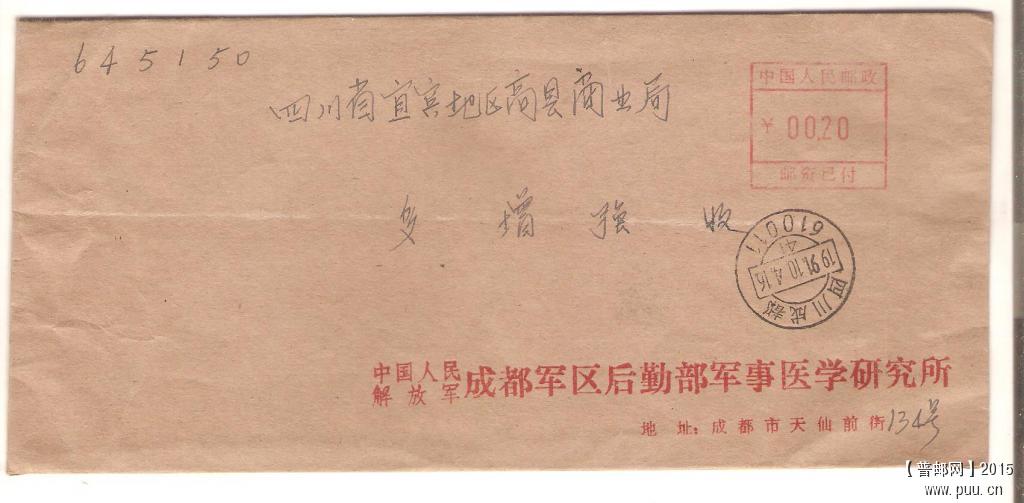 645150
四川省宜宾地区高县商业局
增强 收
中国人民邮政
¥ 00.20
邮资已付
610011
41
1991.10.4.16
四川成都
中国人民解放军成都军区后勤部军事医学研究所
地址:成都市天仙前街134号
【普邮网】2015
www.puu.cn